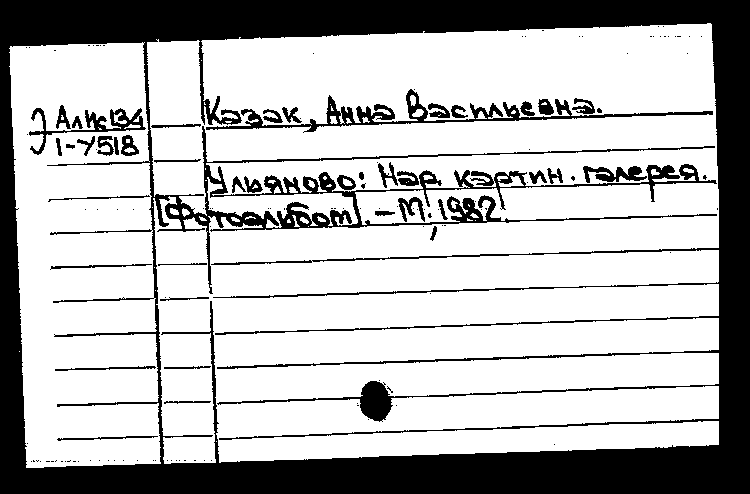 Э АлИс134
1-7518
Казак, Анна Васильевна.
Ульяново: Нар. картин. галерея.
[Фотоальбом]. – М., 1982.